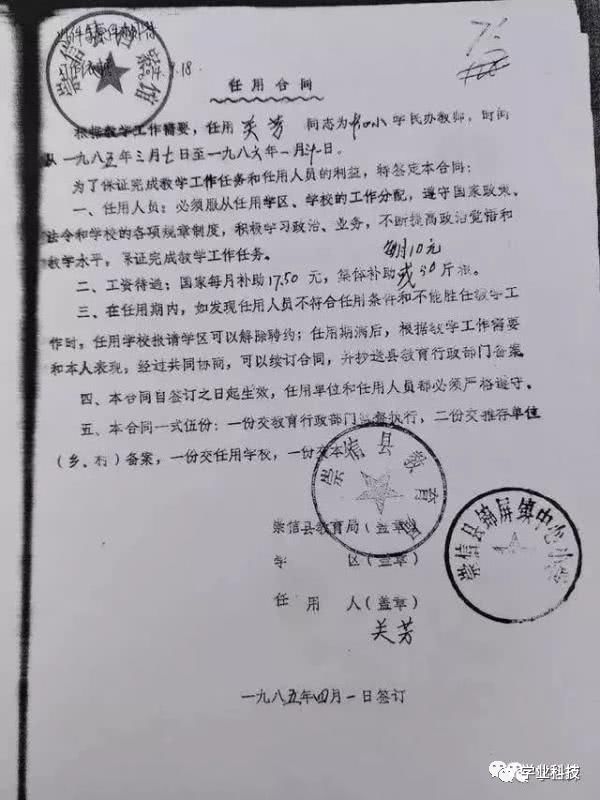 7.18
任用合同
根据教学工作需要，任用 关芳 同志为 小学民办教师，时间
从一九八五年三月七日至一九八六年一月 日。
为了保证完成教学工作任务和任用人员的利益，特签定本合同：
一、任用人员：必须服从任用学区、学校的工作分配，遵守国家政策、
法令和学校的各项规章制度，积极学习政治、业务，不断提高政治觉悟和
教学水平，保证完成教学工作任务。
每月10元
二、工资待遇：国家每月补助17.50元，集体补助或50斤粮。
三、在任用期内，如发现任用人员不符合任用条件和不能胜任教学工
作时，任用学校报请学区可以解除聘约；任用期满后，根据教学工作需要
和本人表现，经过共同协商，可以续订合同，并抄送县教育行政部门备案。
四、本合同自签订之日起生效，任用单位和任用人员都必须严格遵守。
五、本合同一式伍份：一份交教育行政部门监督执行，二份交推荐单位
（乡、村）备案，一份交任用学校，一份交本
崇信县教育局
崇信县教育局（盖章）
崇信县锦屏镇中心小学
学 区（盖章）
任 用 人（盖章）
关芳
一九八五年四月一日签订
学业科技